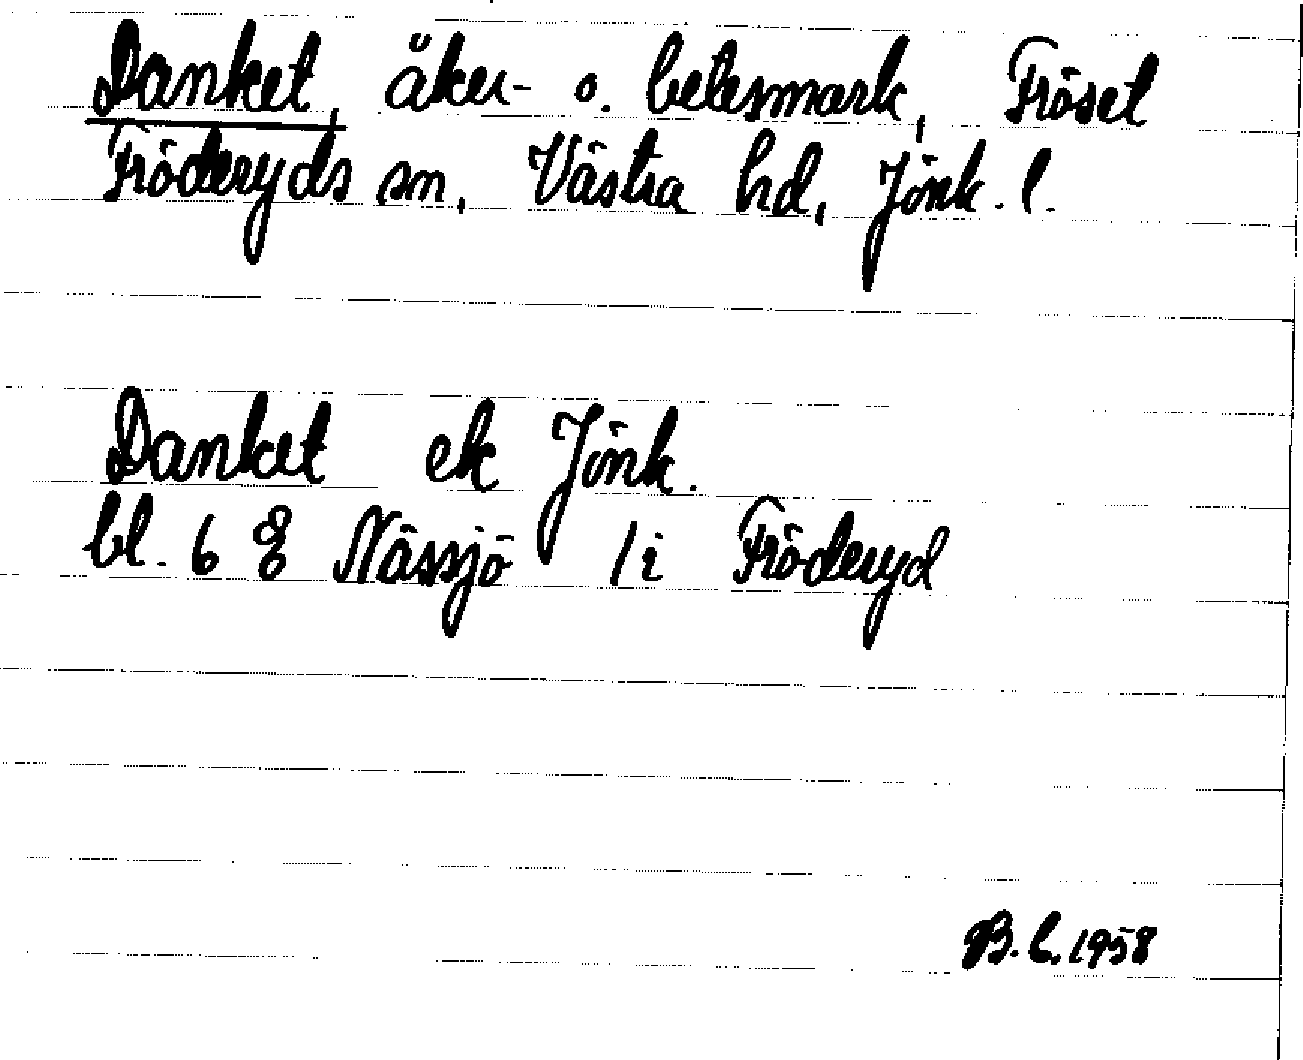 Danket, åker- o. betesmark, Fröset
Fröderyds sn, Västra hd, Jönk. l.
Danket ek Jönk.
bl. 6 8 Nässjö / i Fröderyd
B.L. 1958